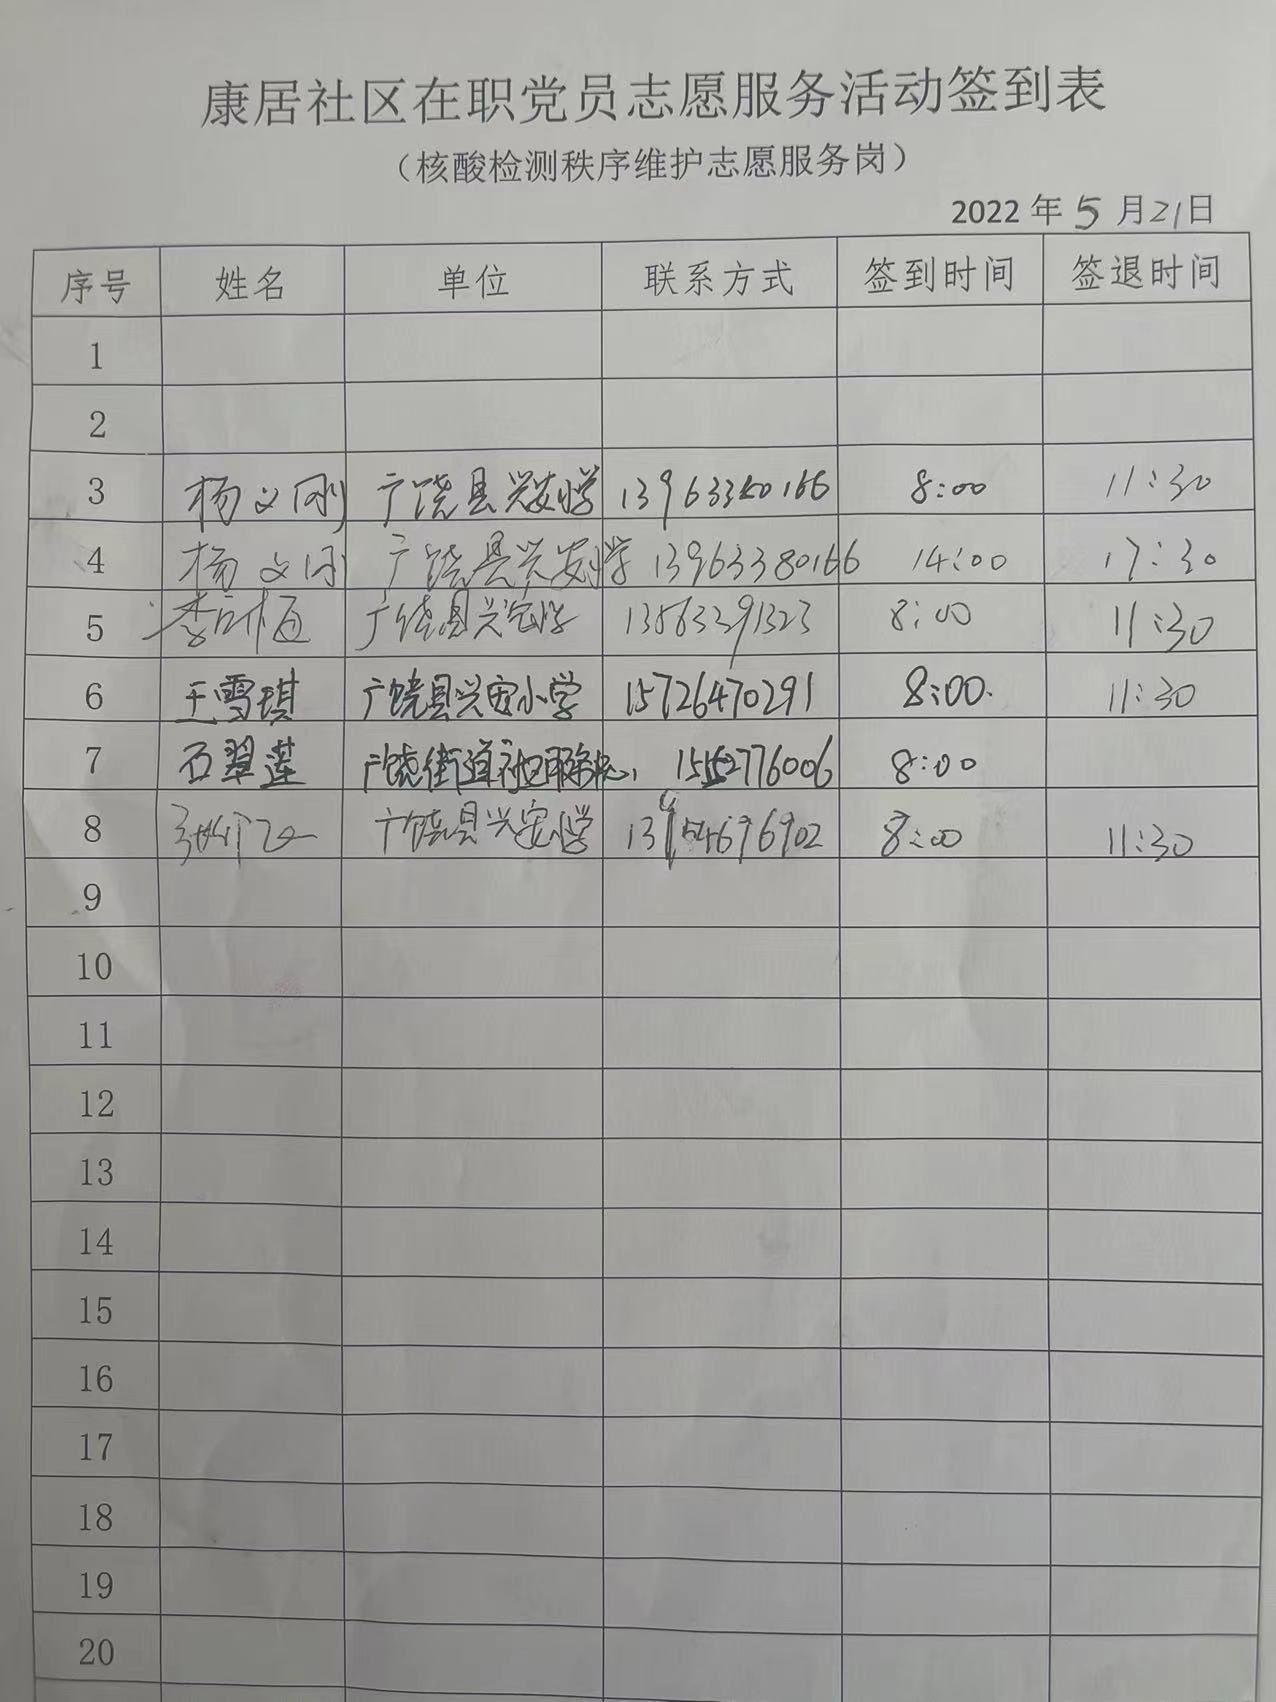 康居社区在职党员志愿服务活动签到表
（核酸检测秩序维护志愿服务岗）
2022 年 5 月 21 日
序号 姓名 单位 联系方式 签到时间 签退时间
1
2
3 杨文刚 广饶县兴安小学 13963380166 8:00 11:30
4 杨文刚 广饶县兴安小学 13963380166 14:00 17:30
5 李 广饶县兴安小学 13563291323 8:00 11:30
6 王雪琪 广饶县兴安小学 15726470291 8:00 11:30
7 石翠莲 广饶街道社区服务中心 8:00
8 广饶县兴安小学 13954696902 8:00 11:30
9
10
11
12
13
14
15
16
17
18
19
20